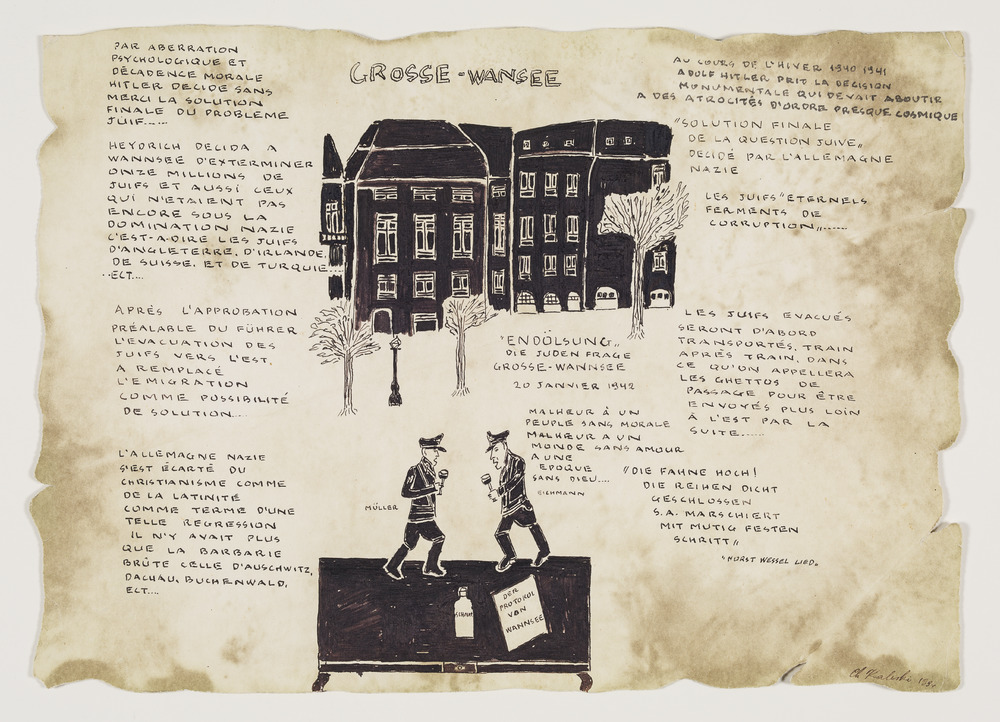 GROSSE-WANSEE
PAR ABERRATION
PSYCHOLOGIQUE ET
DÉCADENCE MORALE
HITLER DECIDE SANS
MERCI LA SOLUTION
FINALE DU PROBLEME
JUIF.....
HEYDRICH DECIDA A
WANNSEE D'EXTERMINER
ONZE MILLIONS DE
JUIFS ET AUSSI CEUX
QUI N'ETAIENT PAS
ENCORE SOUS LA
DOMINATION NAZIE
C'EST-A-DIRE LES JUIFS
D'ANGLETERRE, D'IRLANDE,
DE SUISSE, ET DE TURQUIE...
..ECT....
APRÉS L'APPROBATION
PRÉALABLE DU FÜHRER
L'EVACUATION DES
JUIFS VERS L'EST,
A REMPLACÉ
L'EMIGRATION
COMME POSSIBILITÉ
DE SOLUTION....
L'ALLEMAGNE NAZIE
S'EST ÉCARTÉ DU
CHRISTIANISME COMME
DE LA LATINITÉ
COMME TERME D'UNE
TELLE REGRESSION
IL N'Y AVAIT PLUS
QUE LA BARBARIE
BRÛTE CELLE D'AUSCHWITZ,
DACHAU, BUCHENWALD,
ECT....
AU COURS DE L'HIVER 1940 1941
ADOLF HITLER PRIT LA DECISION
MONUMENTALE QUI DEVAIT ABOUTIR
A DES ATROCITÉS D'ORDRE PRESQUE COSMIQUE
"SOLUTION FINALE
DE LA QUESTION JUIVE„
DECIDÉ PAR L'ALLEMAGNE
NAZIE
LES JUIFS "ETERNELS
FERMENTS DE
CORRUPTION„......
LES JUIFS EVACUÉS
SERONT D'ABORD
TRANSPORTÉS, TRAIN
APRÉS TRAIN, DANS
CE QU'ON APPELLERA
LES GHETTOS DE
PASSAGE POUR ÊTRE
ENVOYÉS PLUS LOIN
À L'EST PAR LA
SUITE......
"ENDÖLSUNG„
DIE JUDEN FRAGE
GROSSE-WANNSEE
20 JANVIER 1942
MALHEUR À UN
PEUPLE SANS MORALE
MALHEUR A UN
MONDE SANS AMOUR
A UNE
EPOQUE
SANS DIEU....
EICHMANN
MÜLLER
"DIE FAHNE HOCH!
DIE REIHEN DICHT
GESCHLOSSEN
S.A. MARSCHIERT
MIT MUTIG FESTEN
SCHRITT„
"HORST WESSEL LIED„
DER
PROTOKOL
VON
WANNSEE